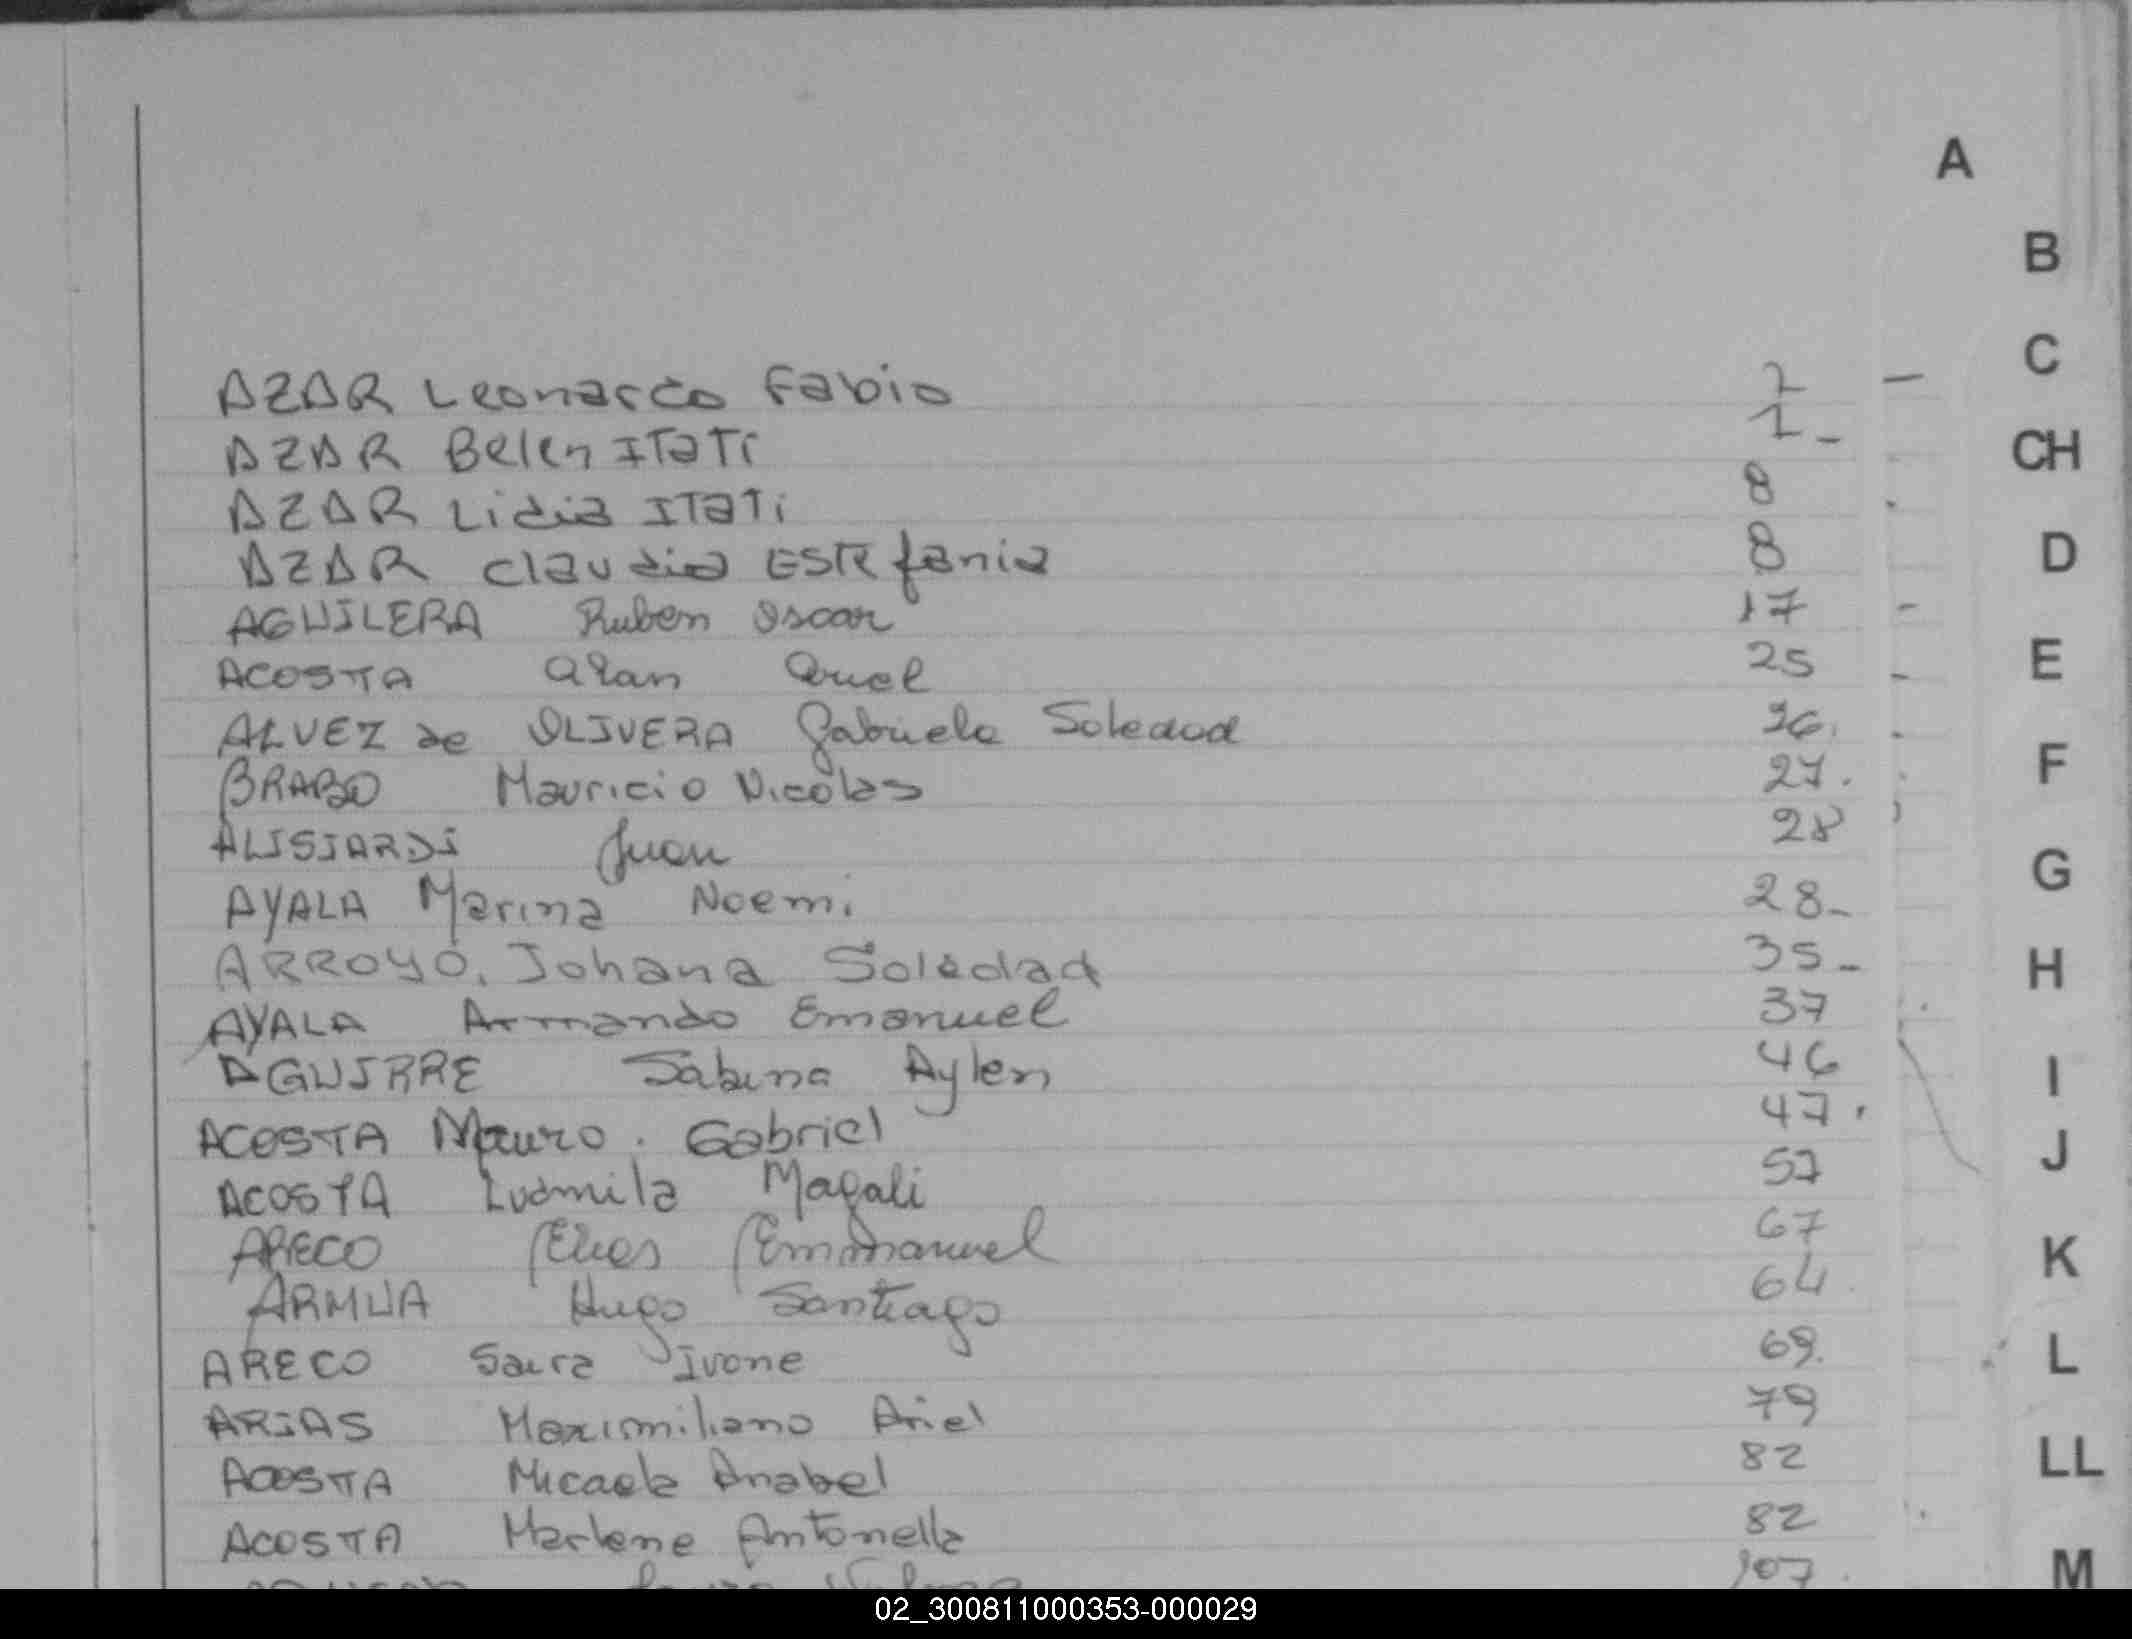 A
B
C
AZAR Leonardo Fabio 7 -
AZAR Belen ITaTi 7 -
CH
AZAR Lidia ITaTi 8
AZAR Claudia ESTEfania 8
D
AGUILERA Ruben Oscar 17
ACOSTA Alan 25
E
ALVEZ de OLIVERA Gabriela Soledad 26.
BRABO Mauricio Nicolas 27.
F
ALISIARDI Juan 28
AYALA Marina Noemi 28-
G
ARROYO, Johana Soledad 35-
H
AYALA Armando Emanuel 37
AGUIRRE Sabina Aylen 46
I
ACOSTA Mauro. Gabriel 47.
J
ACOSTA Ludmila Magali 57
ARECO Elias Emmanuel 67
K
ARMUA Hugo Santiago 64
ARECO Saira Ivone 69.
L
ARIAS Maximiliano Ariel 79
ACOSTA Micaela Anabel 82
LL
ACOSTA Marlene Antonella 82
107.
M
02_300811000353-000029